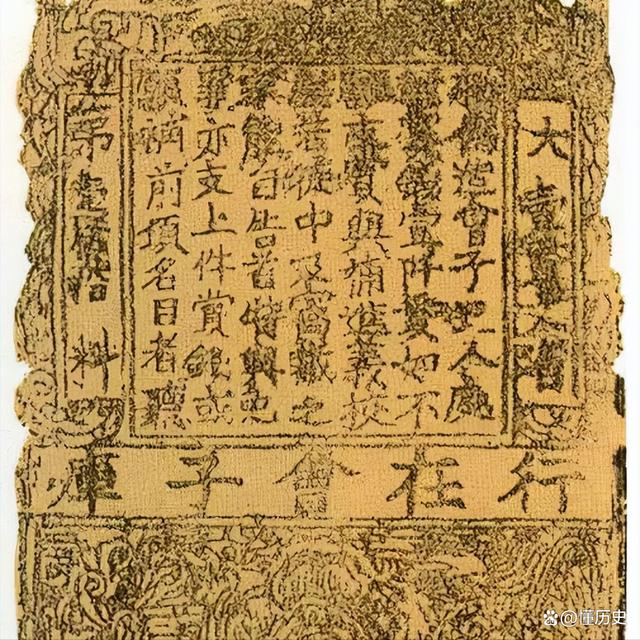 大壹貫文省
敕偽造會子犯人處
斬賞錢壹阡貫如不
願支賞與補進義校
尉若徒中及窩藏之
家能自告首特與免
罪亦支上件賞錢或
願補前項名目者聽
第壹佰拾料
行在會子庫
@懂历史